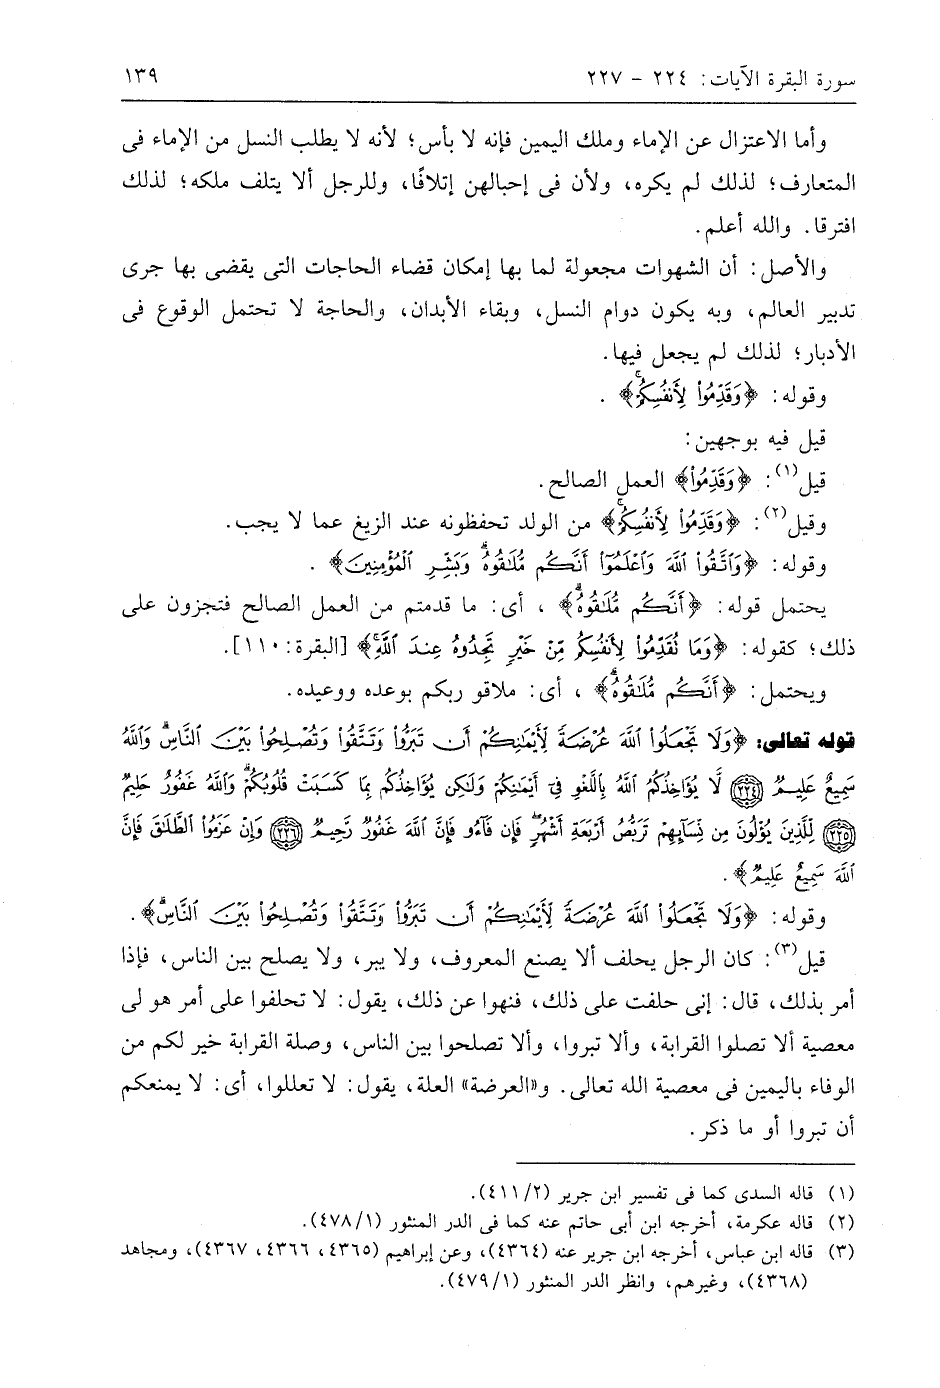 سورة البقرة الآيات: ٢٢٤ - ٢٢٧ ١٣٩
وأما الاعتزال عن الإماء وملك اليمين فإنه لا بأس؛ لأنه لا يطلب النسل من الإماء فى
المتعارف؛ لذلك لم يكره، ولأن فى إحبالهن إتلافًا، وللرجل ألا يتلف ملكه؛ لذلك
افترقا. والله أعلم.
والأصل: أن الشهوات مجعولة لما بها إمكان قضاء الحاجات التى يقضى بها جرى
تدبير العالم، وبه يكون دوام النسل، وبقاء الأبدان، والحاجة لا تحتمل الوقوع فى
الأدبار؛ لذلك لم يجعل فيها.
وقوله: ﴿وَقَدِّمُوا۟ لِأَنفُسِكُمْۚ﴾ .
قيل فيه بوجهين:
قيل(١): ﴿وَقَدِّمُوا۟﴾ العمل الصالح.
وقيل(٢): ﴿وَقَدِّمُوا۟ لِأَنفُسِكُمْۚ﴾ من الولد تحفظونه عند الزيغ عما لا يجب.
وقوله: ﴿وَٱتَّقُوا۟ ٱللَّهَ وَٱعْلَمُوٓا۟ أَنَّكُم مُّلَٰقُوهُۗ وَبَشِّرِ ٱلْمُؤْمِنِينَ﴾ .
يحتمل قوله: ﴿أَنَّكُم مُّلَٰقُوهُۗ﴾ ، أى: ما قدمتم من العمل الصالح فتجزون على
ذلك؛ كقوله: ﴿وَمَا نُقَدِّمُوا۟ لِأَنفُسِكُم مِّنْ خَيْرٍ تَجِدُوهُ عِندَ ٱللَّهِۗ﴾ [البقرة: ١١٠].
ويحتمل: ﴿أَنَّكُم مُّلَٰقُوهُۗ﴾ ، أى: ملاقو ربكم بوعده ووعيده.
قوله تعالى: ﴿وَلَا تَجْعَلُوا۟ ٱللَّهَ عُرْضَةً لِّأَيْمَٰنِكُمْ أَن تَبَرُّوا۟ وَتَتَّقُوا۟ وَتُصْلِحُوا۟ بَيْنَ ٱلنَّاسِۗ وَٱللَّهُ
سَمِيعٌ عَلِيمٌ ﴿٢٢٤﴾ لَّا يُؤَاخِذُكُمُ ٱللَّهُ بِٱللَّغْوِ فِىٓ أَيْمَٰنِكُمْ وَلَٰكِن يُؤَاخِذُكُم بِمَا كَسَبَتْ قُلُوبُكُمْۗ وَٱللَّهُ غَفُورٌ حَلِيمٌ
﴿٢٢٥﴾ لِّلَّذِينَ يُؤْلُونَ مِن نِّسَآئِهِمْ تَرَبُّصُ أَرْبَعَةِ أَشْهُرٍۖ فَإِن فَآءُو فَإِنَّ ٱللَّهَ غَفُورٌ رَّحِيمٌ ﴿٢٢٦﴾ وَإِنْ عَزَمُوا۟ ٱلطَّلَٰقَ فَإِنَّ
ٱللَّهَ سَمِيعٌ عَلِيمٌ﴾ .
وقوله: ﴿وَلَا تَجْعَلُوا۟ ٱللَّهَ عُرْضَةً لِّأَيْمَٰنِكُمْ أَن تَبَرُّوا۟ وَتَتَّقُوا۟ وَتُصْلِحُوا۟ بَيْنَ ٱلنَّاسِۗ﴾ .
قيل(٣): كان الرجل يحلف ألا يصنع المعروف، ولا يبر، ولا يصلح بين الناس، فإذا
أمر بذلك، قال: إنى حلفت على ذلك، فنهوا عن ذلك، يقول: لا تحلفوا على أمر هو لى
معصية ألا تصلوا القرابة، وألا تبروا، وألا تصلحوا بين الناس، وصلة القرابة خير لكم من
الوفاء باليمين فى معصية الله تعالى. و«العرضة» العلة، يقول: لا تعللوا، أى: لا يمنعكم
أن تبروا أو ما ذكر.
(١) قاله السدى كما فى تفسير ابن جرير (٢/ ٤١١).
(٢) قاله عكرمة، أخرجه ابن أبى حاتم عنه كما فى الدر المنثور (١/ ٤٧٨).
(٣) قاله ابن عباس، أخرجه ابن جرير عنه (٤٣٦٤)، وعن إبراهيم (٤٣٦٥، ٤٣٦٦، ٤٣٦٧)، ومجاهد
(٤٣٦٨)، وغيرهم، وانظر الدر المنثور (١/ ٤٧٩).